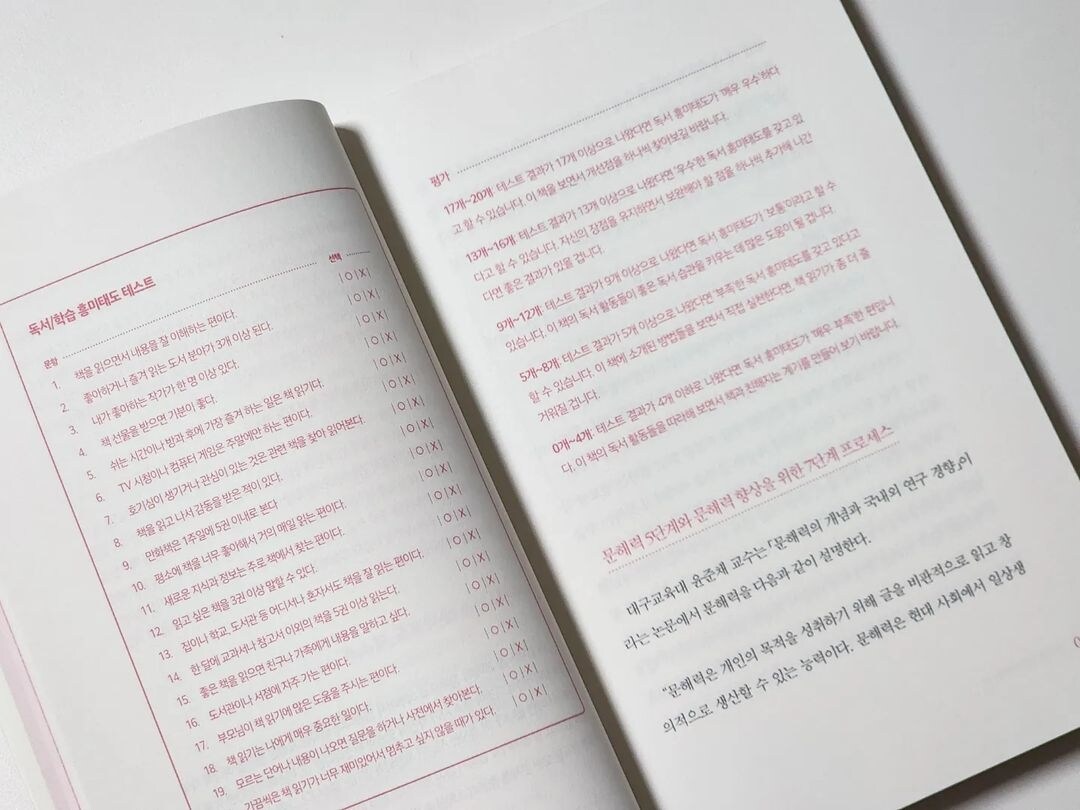 독서/학습 흥미태도 테스트
문항 선택
1. 책을 읽으면서 내용을 잘 이해하는 편이다. |O|X|
2. 좋아하거나 즐겨 읽는 도서 분야가 3개 이상 된다. |O|X|
3. 내가 좋아하는 작가가 한 명 이상 있다. |O|X|
4. 책 선물을 받으면 기분이 좋다. |O|X|
5. 쉬는 시간이나 방과 후에 가장 즐겨 하는 일은 책 읽기다. |O|X|
6. TV 시청이나 컴퓨터 게임은 주말에만 하는 편이다. |O|X|
7. 호기심이 생기거나 관심이 있는 것은 관련 책을 찾아 읽어본다. |O|X|
8. 책을 읽고 나서 감동을 받은 적이 있다. |O|X|
9. 만화책은 1주일에 5권 이내로 본다 |O|X|
10. 평소에 책을 너무 좋아해서 거의 매일 읽는 편이다. |O|X|
11. 새로운 지식과 정보는 주로 책에서 찾는 편이다. |O|X|
12. 읽고 싶은 책을 3권 이상 말할 수 있다. |O|X|
13. 집이나 학교, 도서관 등 어디서나 혼자서도 책을 잘 읽는 편이다. |O|X|
14. 한 달에 교과서나 참고서 이외의 책을 5권 이상 읽는다. |O|X|
15. 좋은 책을 읽으면 친구나 가족에게 내용을 말하고 싶다. |O|X|
16. 도서관이나 서점에 자주 가는 편이다. |O|X|
17. 부모님이 책 읽기에 많은 도움을 주시는 편이다. |O|X|
18. 책 읽기는 나에게 매우 중요한 일이다. |O|X|
19. 모르는 단어나 내용이 나오면 질문을 하거나 사전에서 찾아본다. |O|X|
가끔씩은 책 읽기가 너무 재미있어서 멈추고 싶지 않을 때가 있다. |O|X|
평가
17개~20개: 테스트 결과가 17개 이상으로 나왔다면 독서 흥미태도가 '매우 우수'하다
고 할 수 있습니다. 이 책을 보면서 개선점을 하나씩 찾아보길 바랍니다.
13개~16개: 테스트 결과가 13개 이상으로 나왔다면 '우수'한 독서 흥미태도를 갖고 있
다고 할 수 있습니다. 자신의 장점을 유지하면서 보완해야 할 점을 하나씩 추가해 나간
다면 좋은 결과가 있을 겁니다.
9개~12개: 테스트 결과가 9개 이상으로 나왔다면 독서 흥미태도가 '보통'이라고 할 수
있습니다. 이 책의 독서 활동들이 좋은 독서 습관을 키우는 데 많은 도움이 될 겁니다.
5개~8개: 테스트 결과가 5개 이상으로 나왔다면 '부족'한 독서 흥미태도를 갖고 있다고
할 수 있습니다. 이 책에 소개된 방법들을 보면서 직접 실천한다면, 책 읽기가 좀 더 즐
거워질 겁니다.
0개~4개: 테스트 결과가 4개 이하로 나왔다면 독서 흥미태도가 '매우 부족'한 편입니
다. 이 책의 독서 활동들을 따라해 보면서 책과 친해지는 계기를 만들어 보기 바랍니다.
문해력 5단계와 문해력 향상을 위한 7단계 프로세스
대구교육대 윤준채 교수는 「문해력의 개념과 국내외 연구 경향」이
라는 논문에서 문해력을 다음과 같이 설명한다.
"문해력은 개인의 목적을 성취하기 위해 글을 비판적으로 읽고 창
의적으로 생산할 수 있는 능력이다. 문해력은 현대 사회에서 일상생